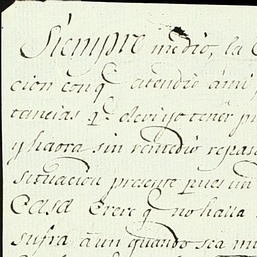 Siempre medio, la
cion con q.e atendio âmi
tancias q.e devi yo tener
y haora sin remedio repaso
situacion presente pues un
Casa Crere q.e no halla
sufra â un quando sea mu